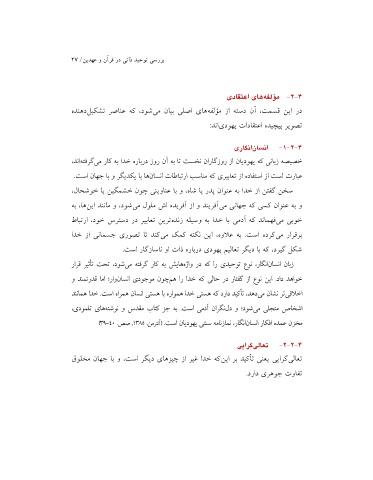 بررسی توحید ذاتی در قرآن و عهدین / ۲۷
۲-۴- مؤلفه‌های اعتقادی
در این قسمت، آن دسته از مؤلفه‌های اصلی بیان می‌شود، که عناصر تشکیل‌دهنده
تصویر پیچیده اعتقادات یهودی‌اند:
۱-۲-۴- انسان‌انگاری
خصیصه زبانی که یهودیان از روزگاران نخست تا به آن روز درباره خدا به کار می‌گرفته‌اند،
عبارت است از استفاده از تعابیری که مناسب ارتباطات انسان‌ها با یکدیگر و با جهان است.
سخن گفتن از خدا به عنوان پدر یا شاه، و با عناوینی چون خشمگین یا خوشحال،
و به عنوان کسی که جهانی می‌آفریند و از آفریده اش ملول می‌شود، و مانند این‌ها، به
خوبی می‌فهماند که آدمی با خدا به وسیله زنده‌ترین تعابیر در دسترس خود، ارتباط
برقرار می‌کرده است. به علاوه، این نکته کمک می‌کند تا تصوری جسمانی از خدا
شکل گیرد، که با دیگر تعالیم یهودی درباره ذات او ناسازگار است.
زبان انسان‌انگار، نوع توحیدی را که در واژه‌هایش به کار گرفته می‌شود، تحت تأثیر قرار
خواهد داد. این نوع از گفتار در حالی که خدا را هم‌چون موجودی انسان‌وار؛ اما قدرتمند و
اخلاقی‌تر نشان می‌دهد، تأکید دارد که هستی خدا همواره با هستی انسان همراه است. خدا همانند
اشخاص متجلی می‌شود؛ و دل‌نگران آدمی است. به جز کتاب مقدس و نوشته‌های تلمودی،
مخزن عمده افکار انسان‌انگار، نمازنامه سنتی یهودیان است. (آنترمن، ۱۳۸۵، صص ۴۰-۳۹)
۲-۲-۴- تعالی‌گرایی
تعالی‌گرایی یعنی تأکید بر این‌که خدا غیر از چیزهای دیگر است، و با جهان مخلوق
تفاوت جوهری دارد.